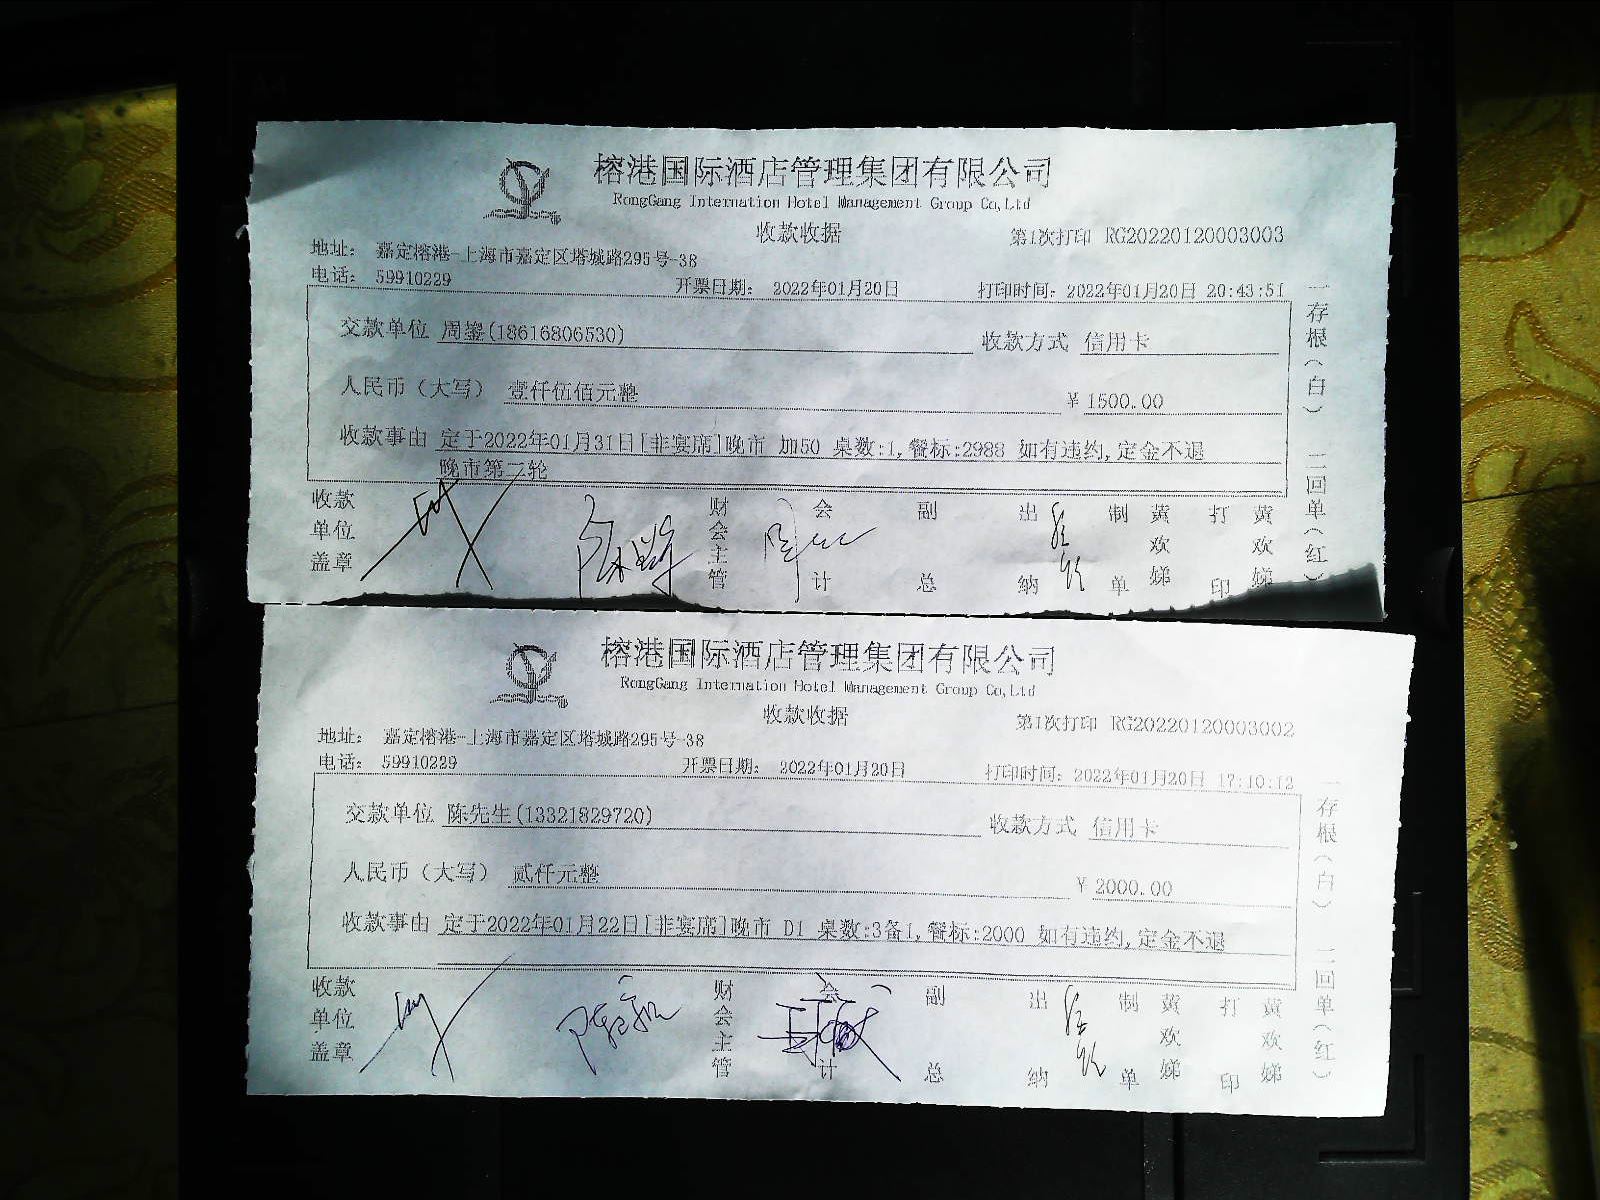 榕港国际酒店管理集团有限公司
RongGang Internation Hotel Management Group Co,Ltd
收款收据
第1次打印 RG20220120003003
地址： 嘉定榕港-上海市嘉定区塔城路295号-38
电话： 59910229
开票日期： 2022年01月20日
打印时间：2022年01月20日 20:43:51
交款单位 周鋆(18616806530)
收款方式 信用卡
人民币（大写） 壹仟伍佰元整
¥ 1500.00
收款事由 定于2022年01月31日[非宴席]晚市 加50 桌数:1,餐标:2988 如有违约,定金不退
晚市第二轮
收款单位盖章
财会主管
会计
副总
出纳
制单 黄欢娣
打印 黄欢娣
一存根（白） 二回单（红）
榕港国际酒店管理集团有限公司
RongGang Internation Hotel Management Group Co,Ltd
收款收据
第1次打印 RG20220120003002
地址： 嘉定榕港-上海市嘉定区塔城路295号-38
电话： 59910229
开票日期： 2022年01月20日
打印时间：2022年01月20日 17:10:12
交款单位 陈先生(13321829720)
收款方式 信用卡
人民币（大写） 贰仟元整
¥ 2000.00
收款事由 定于2022年01月22日[非宴席]晚市 D1 桌数:3备1,餐标:2000 如有违约,定金不退
收款单位盖章
财会主管
会计
副总
出纳
制单 黄欢娣
打印 黄欢娣
一存根（白） 二回单（红）